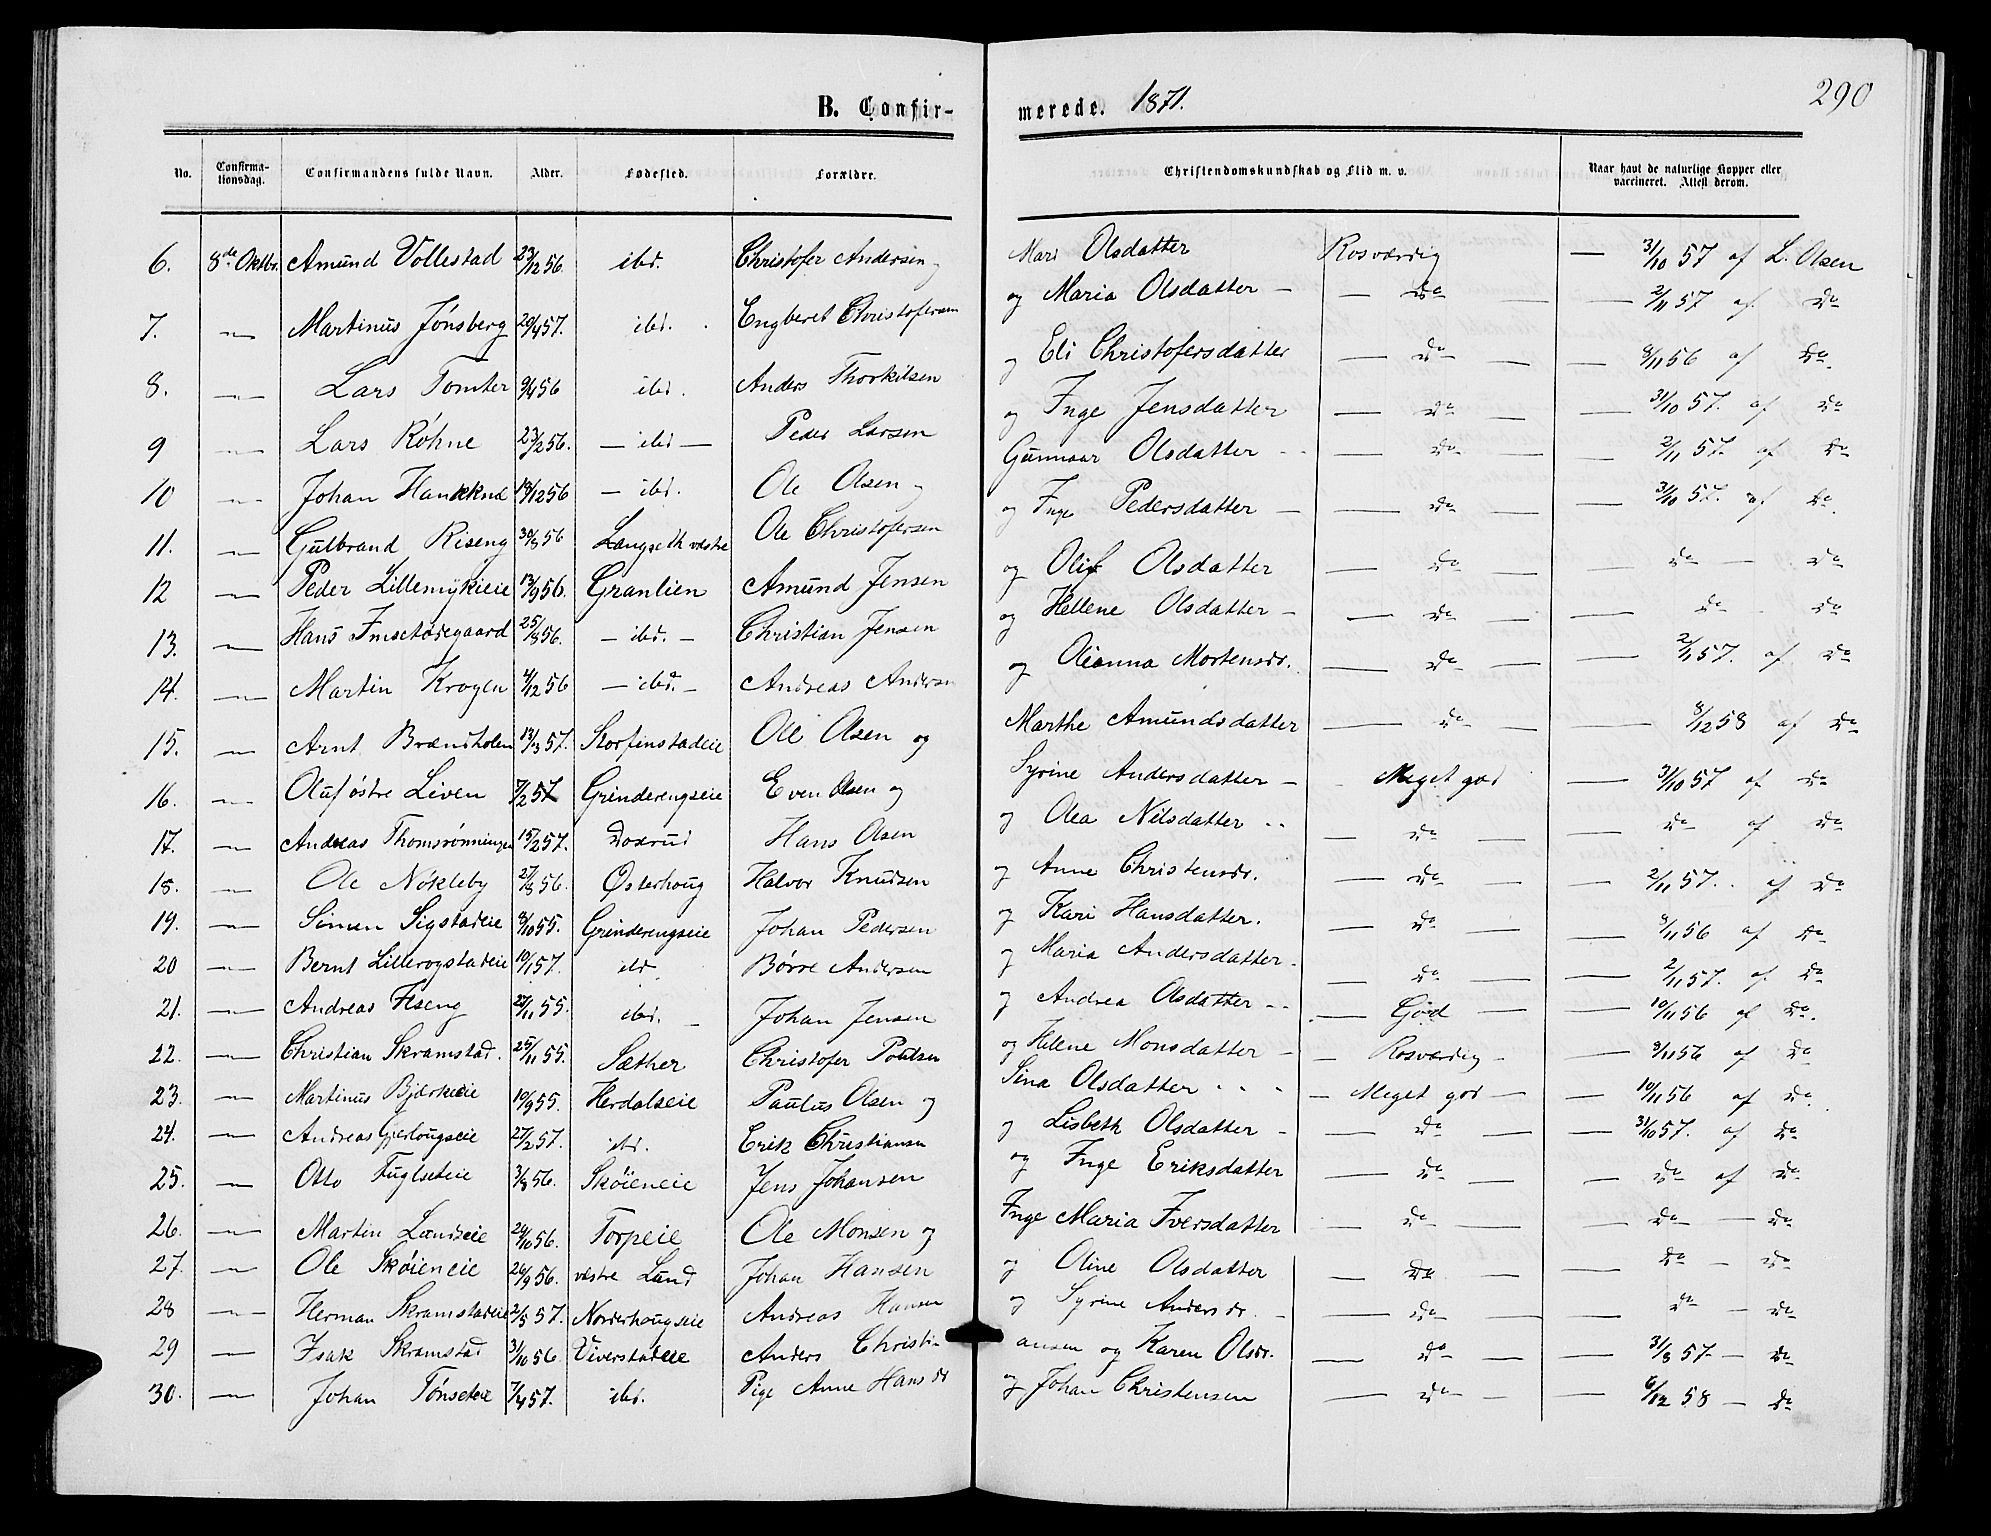 290
B. Confir- merede. 1871.
No. Confirma-tionsdag. Confirmandens fulde Navn. Alder. Fødested. Forældre. Christendomskundskab og Flid m. v. Naar havt de naturlige Kopper eller vaccineret. Attest derom.
6. 8de Oktbr. Amund Vollestad 23/12 56. ibd. Christofer Andersen og Mari Olsdatter Rosværdig — 31/10 57 af L. Olsen
7. —"— Martinus Jønsberg 20/4 57. ibd. Engbret Christofersen og Maria Olsdatter — — do — — 2/11 57 af do
8. —"— Lars Tomter 9/4 56 ibd. Anders Thorkilsen og Eli Christofersdatter — do — — 8/11 56 af do.
9 —"— Lars Røhne 23/2 56. — ibd — Peder Larsen og Inge Jensdatter — do — — 31/10 57. af do
10 —"— Johan 18/12 56 — ibd. Ole Olsen og Gunnaar Olsdatter — do — — 2/11 57. af do
11. —"— Gulbrand Riseng 30/8 56 Langseth vestre Ole Christofersen og Inge Pedersdatter — — do — — 31/10 57. af do.
12 —"— Peder Lillemykieie 13/9 56. Granlien Amund Jensen og Olif Olsdatter — do — — do — do
13. —"— Hans Imsetødegaard 25/8 56. — ibd. — Christian Jensen og Hellene Olsdatter — — do — — do - do
14. —"— Martin Krogen 4/12 56 — ibd. — Andreas Andersen og Oleanna Mortensdr. — do — — 2/11 57. af do
15. —"— Arnt Brændholen 13/3 57. Storfinstadeie Ole Olsen og Marthe Amundsdatter — do — — 8/12 58 af do
16. —"— Oluf østre Liven 7/2 57 Grinderengseie Even Olsen og Syrine Andersdatter — Meget god — 31/10 57 af do
17. —"— Andreas Thomsrønningen 15/2 57. Doxrud Hans Olsen og Olea Nilsdatter — do — — do af do
18. —"— Ole Nökleby 27/8 56. Østerhoug Halvor Knudsen og Anne Christensdr. — do — — 2/11 57. af do
19. —"— Simen Sigstadeie 8/10 55. Grinderengseie Johan Pedersen og Kari Hansdatter. — do — — 8/11 56 af do
20 —"— Bernt Lillerogstadeie 10/1 57. ibd Børre Andersen og Maria Andersdatter. — do — — 2/11 57. af do
21. —"— Andreas Iseng 28/11 55. ibd. — Johan Jensen og Andrea Olsdatter — God — — 10/11 56 af do.
22. —"— Christian Skramstad. 25/11 55. Sæther Christofer Poulsen og Helene Monsdatter — — Rosværdig — — 8/11 56 af do
23. —"— Martinus Bjørkeeie 10/9 55. Herdalseie Paulus Olsen og Sina Olsdatter — Meget god — — 10/11 56 af do.
24. —"— Andreas 27/2 57. ibd. Erik Christiansen og Lisbeth Olsdatter — — do — — 31/10 57. af do
25. —"— Otto Fuglseteie 3/8 56. Skøieneie Jens Johansen og Inge Eriksdatter — do — — do af do
26. —"— Martin Lundseie 24/10 56. Torpeie Ole Monsen og Inge Maria Iversdatter — do — — do — do
27. —"— Ole Skøieneie 26/9 56. vestre Lund Johan Hansen og Oline Olsdatter — do — — do — do
28 —"— Herman Skramstadeie 2/5 57. Norderhougseie Andreas Hansen og Syrine Andersdr. — — do — — do — do
29 —"— Isak Skramstad 31/10 56. Viverstadeie Anders Christi-ansen og Karen Olsdr. — do — — 31/8 57 — do
30. —"— Johan Tønseteie 7/4 57. ibd. Pige Anne Hansdr og Johan Christensen — do — — 6/12 58 — do